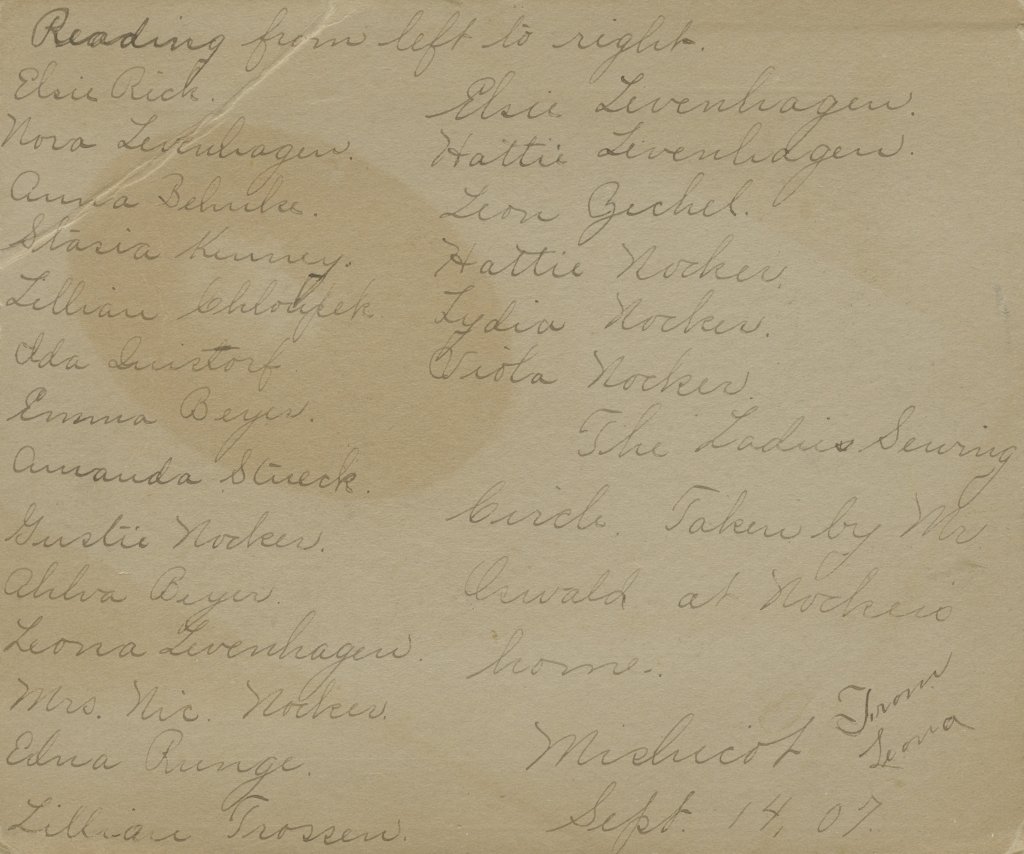 Reading from left to right.
Elsie Rick.
Nora Levenhagen.
Anna Behnke.
Stasia Kenney.
Lillian Chloupek.
Ida Quistorf
Emma Beyer.
Amanda Stueck.
Gustie Nocker.
Ahlva Beyer.
Leona Levenhagen.
Mrs. Nic. Nocker.
Edna Runge.
Lillian Trossen.
Elsie Levenhagen.
Hattie Levenhagen.
Leon Zechel.
Hattie Nocker.
Lydia Nocker.
Viola Nocker.
The Ladies Sewing
Circle. Taken by Mr
Oswald at Nockers
home.
Mishicot
Sept. 14, 07.
From
Leona